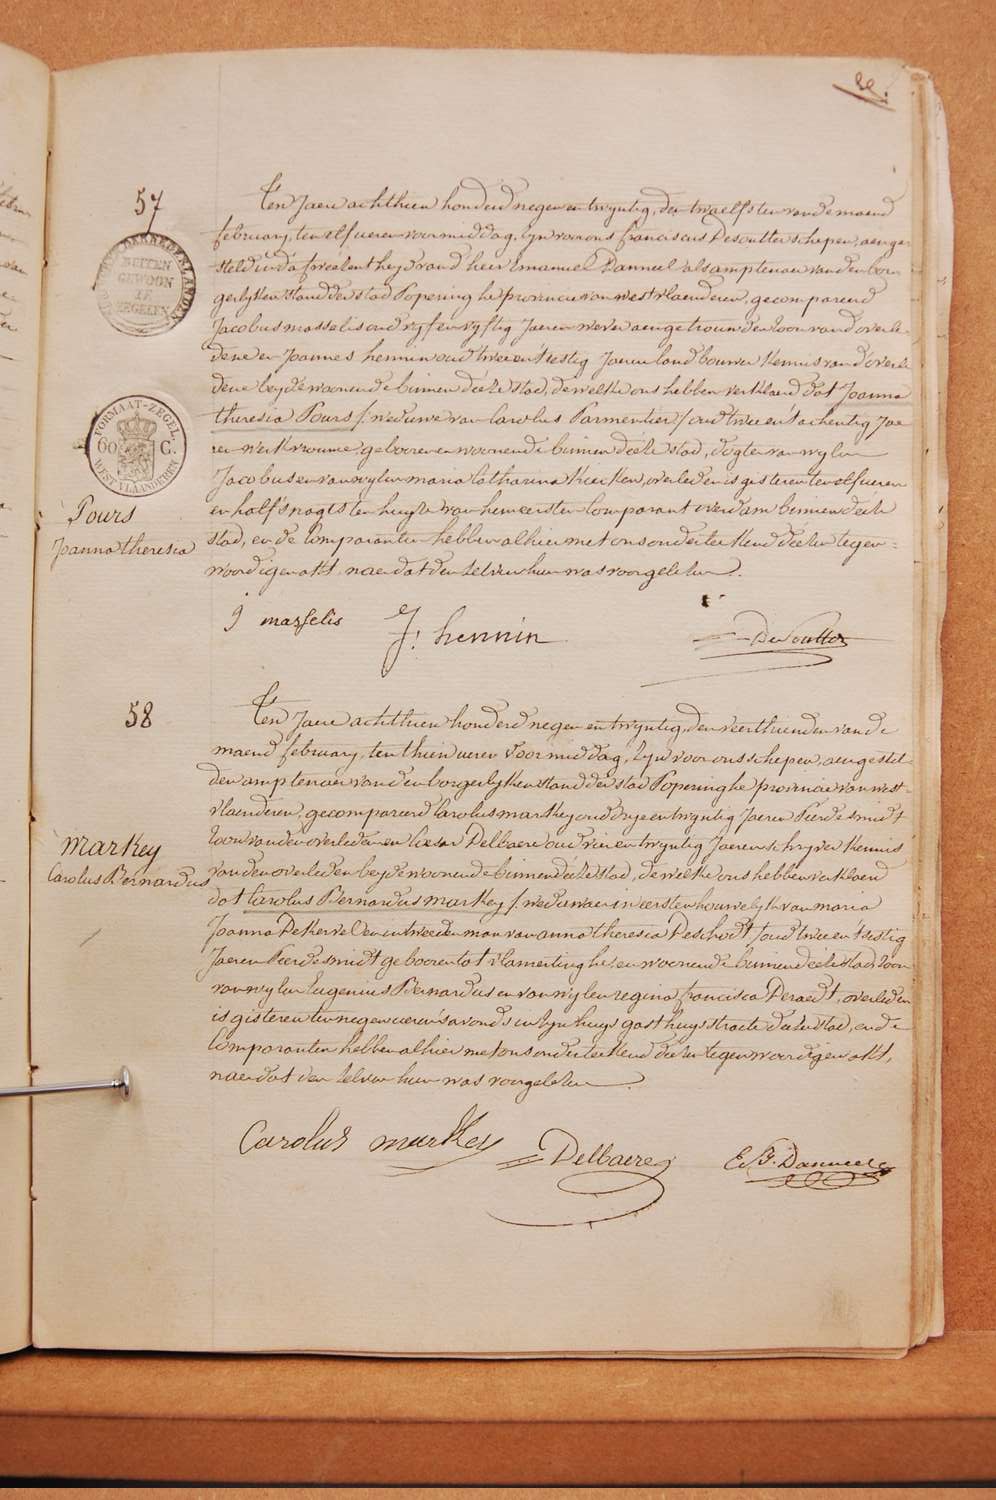 57
Ten Jaere achthien honderd negen en twyntig, den twaelfsten van de maend
february, ten elf ueren voormiddag, Zyn voor ons franciscus Desoutter schepen, aenge-
steld in d'afweézentheyd van d'heer Emanuel Danneel als amptenaer van den bor-
gerlyken stand der stad Poperinghe provincie van westvlaenderen, gecompareerd
Jacobus masselis oud vyf en vyftig Jaeren wever aengetrouwden Zoon van d'overle-
dene en Joannes hennin oud twee en t'sestig Jaeren landbouwer kennis van d'overle-
dene beyde woonende binnen deéze stad, dewelke ons hebben verklaerd dat Joanna
theresia Pours /: weduwe van Carolus Parmentier / oud twee en t'achentig Jae-
ren werkvrouwe, gebooren en woonende binnen deéze stad, dogter van wylen
Jacobus en van wylen maria Catharina Kiecken, overleden is gisteren ten elf ueren
en half s'nagts ten huyze van hem eersten Comparant overdam binnen deéze
stad, en de Comparanten hebben alhier met ons onderteekend deézen tegen-
woordigen akt, naer dat den zelven hun was voorgelezen.
BUITEN
GEWOON
TE
ZEGELEN
FORMAAT-ZEGEL.
60 C.
WEST VLAANDEREN
Pours
Joanna theresia
J masselis
J: hennin
Desoutter
58
Ten Jaere achthien honderd negen en twyntig, den veerthienden van de
maend february, ten thien ueren voormiddag, Zyn voor ons schepen, aengestel-
den amptenaer van den borgerlyken stand der stad Poperinghe provincie van west-
vlaenderen, gecompareerd Carolus markey oud drye en twyntig Jaeren Peerdesmidt
Zoon van den overledenen en Cæsar Delbaere oud vier en twyntig Jaeren schryver kennis
van den overleden beyde woonende binnen deéze stad, dewelke ons hebben verklaerd
dat Carolus Bernardus markey /: weduwaer in eersten houwelyk van maria
Joanna Dekervel en in tweeden man van anna theresia Deschodt / oud twee en t'sestig
Jaeren Peerdesmidt gebooren tot vlamertinghe, en woonende binnen deéze stad, Zoon
van wylen Eugenius Bernardus en van wylen regina francisca Deraedt, overleden
is gisteren ten negen ueren s'avonds in Zyn huys gasthuys straete deézer stad, en de
Comparanten hebben alhier met ons onderteekend deézen tegenwoordigen akt,
naer dat den zelven hun was voorgelezen.
Markey
Carolus Bernardus
Carolus markey
Delbaere
E. F. Danneel